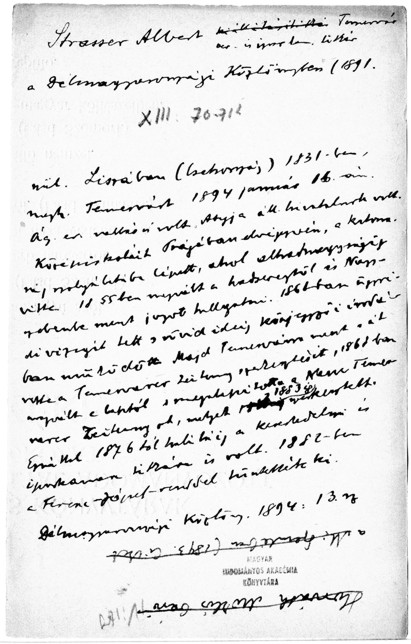 Strasser Albert Temesvár
ker. is ipar kam. titkár
a Délmagyarországi Közlönyben (1891.
XIII. 70-71l
szül. Lissában (Csehország) 1831-ben,
megh. Temesvárt 1894 január 16.-án.
Ág. ev. vallású volt. Atyja áll. hivatalnok volt.
Középiskoláit Prágában elvégezvén, a katona-
szolgálatba lépett, ahol alhadnagyságig
vitte. 1855ben megvált a hadseregtől és Nagy-
szebenbe ment jogot hallgatni. 1861-ban ügyvé-
di vizsgát tett s rövid ideig közjegyzői irodá-
ban működött. Majd Temesvárra ment s át-
vette a Temesvarer Zeitung szerkesztését, 1868ban
megvált a laptól s megalapította a Neue Temes-
varer Zeitung ot, melyet 1883ig szerkesztett.
Ezúttal 1876 tól haláláig a kereskedelmi és
iparkamara titkára is volt. 1882-ben
a Ferenc-József-renddel tüntették ki.
Délmagyarországi Közlöny. 1894. 13. sz
MAGYAR
TUDOMÁNYOS AKADÉMIA
KÖNYVTÁRA